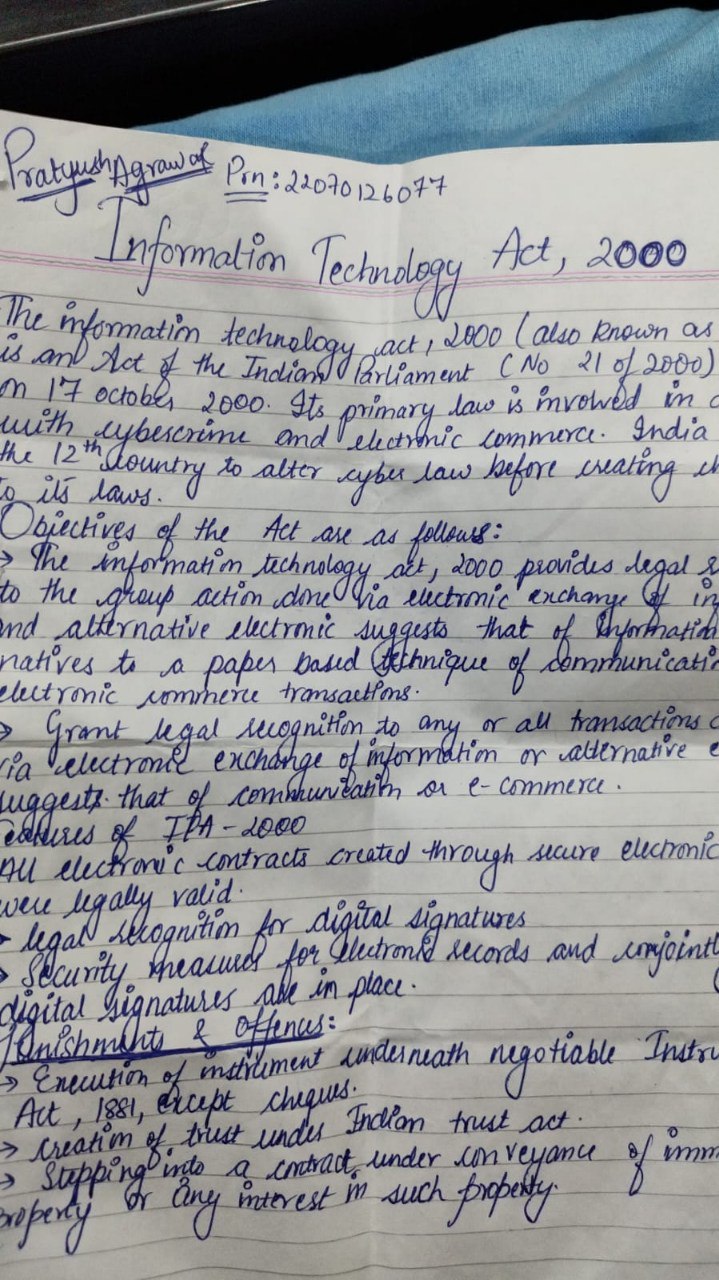 Pratyush Agrawal Prn: 22070126077
Information Technology Act, 2000
The information technology act, 2000 (also known as
is an Act of the Indian Parliament (No 21 of 2000)
on 17 october 2000. Its primary law is involved in
with cybercrime and electronic commerce. India
the 12th country to alter cyber law before creating
to its laws.
Objectives of the Act are as follows:
→ The information technology act, 2000 provides legal
to the group action done via electronic exchange of
and alternative electronic suggests that of information
natives to a paper based technique of
electronic commerce transactions.
→ Grant legal recognition to any or all transactions
via electronic exchange of information or alternative
suggests that of communication or e-commerce.
Features of ITA-2000
All electronic contracts created through secure electronic
were legally valid.
→ legal recognition for digital signatures
→ Security measures for electronic records and
digital signatures are in place.
Punishments & Offences:
→ Execution of instrument underneath negotiable
Act, 1881, except cheques.
→ creation of trust under Indian trust act.
→ Stepping into a contract under conveyance of
property or any interest in such property.